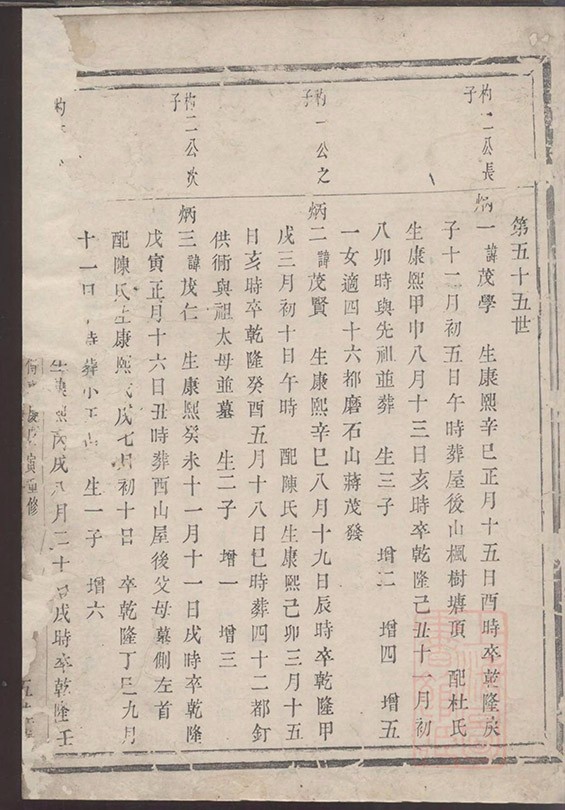 第五十五世
杓二公長子
炳一諱茂學 生康熙辛巳正月十五日酉時卒乾隆戾
子十二月初五日午時葬屋後山楓樹塘頂 配杜氏
生康熙甲申八月十三日亥時卒乾隆己丑十一月初
八卯時與先祖並葬 生三子 增二 增四 增五
一女適四十六都磨石山蔣茂發
杓一公之子
炳二諱茂賢 生康熙辛巳八月十九日辰時卒乾隆甲
戌三月初十日午時 配陳氏生康熙己卯三月十五
日亥時卒乾隆癸酉五月十八日巳時葬四十二都釘
供術與祖太母並墓 生二子 增一 增三
杓二公次子
炳三諱茂仁 生康熙癸未十一月十一日戌時卒乾隆
戊寅正月十六日丑時葬酉山屋後父母墓側左首
配陳氏生康熙戊戌七月初十日 卒乾隆丁巳九月
十一日 時葬小 山 生一子 增六
杓
生康熙丙戌八月二十 日戌時卒乾隆壬
寅重修
五